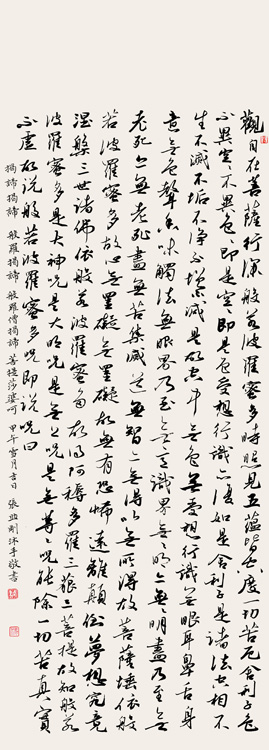 觀自在菩薩行深般若波羅蜜多時照見五蘊皆空度一切苦厄舍利子色
不異空空不異色色即是空空即是色受想行識亦復如是舍利子是諸法空相不
生不滅不垢不淨不增不減是故空中無色無受想行識無眼耳鼻舌身
意無色聲香味觸法無眼界乃至無意識界無無明亦無無明盡乃至無
老死亦無老死盡無苦集滅道無智亦無得以無所得故菩薩埵依般
若波羅蜜多故心無罣礙無罣礙故無有恐怖遠離顛倒夢想究竟
涅槃三世諸佛依般若波羅蜜多故得阿耨多羅三藐三菩提故知般若
波羅蜜多是大神咒是大明咒是無上咒是無等等咒能除一切苦真實
不虛故說般若波羅蜜多咒即說咒曰
揭諦揭諦 般羅揭諦 般羅僧揭諦 菩提莎婆可 甲午雪月吉日 張剛沐手敬書